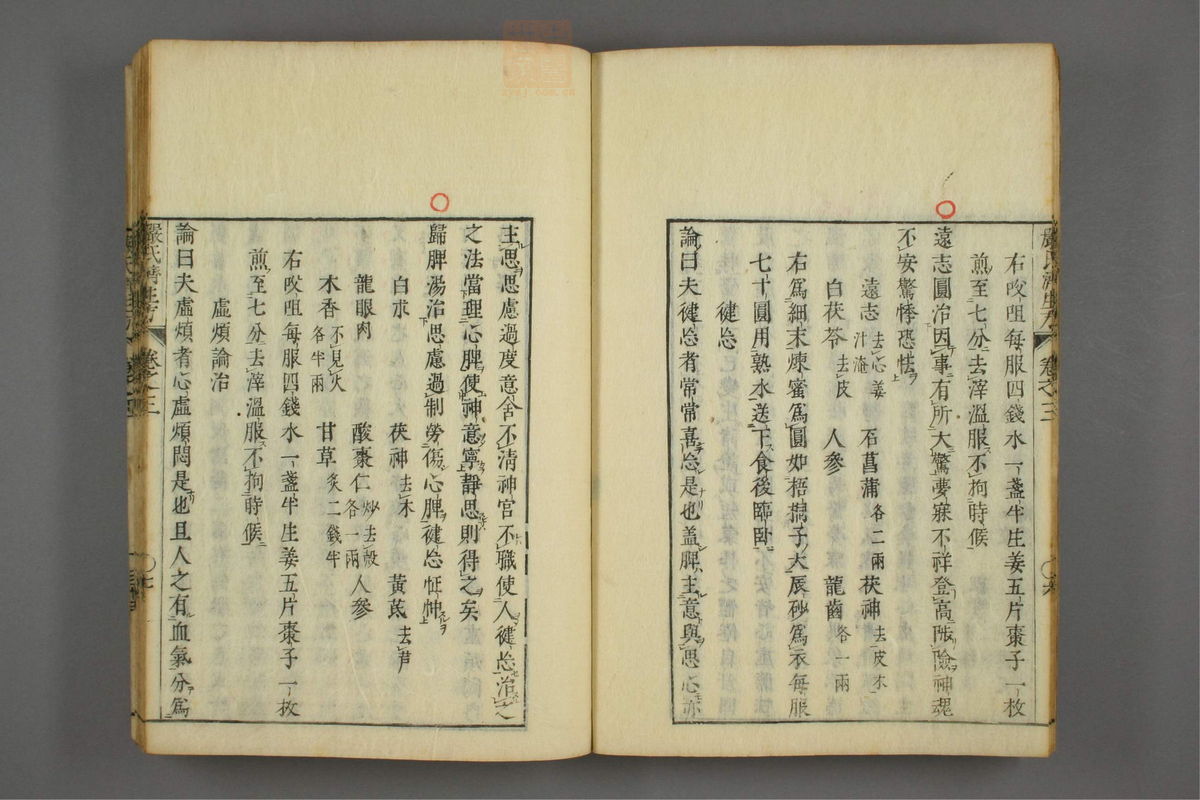 右㕮咀每服四錢水一盞半生姜五片棗子一枚
煎至七分去滓溫服不拘時候
遠志圓治因事有所大驚夢寐不祥登高陟險神魂
不安驚悸恐怯
遠志去心姜汁淹 石菖蒲各二兩 茯神去皮木
白茯苓去皮 人參 龍齒各一兩
右為細末煉蜜為圓如梧桐子大辰砂為衣每服
七十圓用熟水送下食後臨臥
健忘
論曰夫健忘者常常喜忘是也蓋脾主意與思心亦
主思思慮過度意舍不清神官不職使人健忘治之
之法當理心脾使神意寧靜思則得之矣
歸脾湯治思慮過制勞傷心脾健忘怔忡
白朮 茯神去木 黃茋去芦
龍眼肉 酸棗仁炒去殼各一兩 人參
木香不見火各半兩 甘草炙二錢半
右㕮咀每服四錢水一盞半生姜五片棗子一枚
煎至七分去滓溫服不拘時候
虛煩論治
論曰夫虛煩者心虛煩悶是也且人之有血氣分為
嚴氏濟生方 卷之三